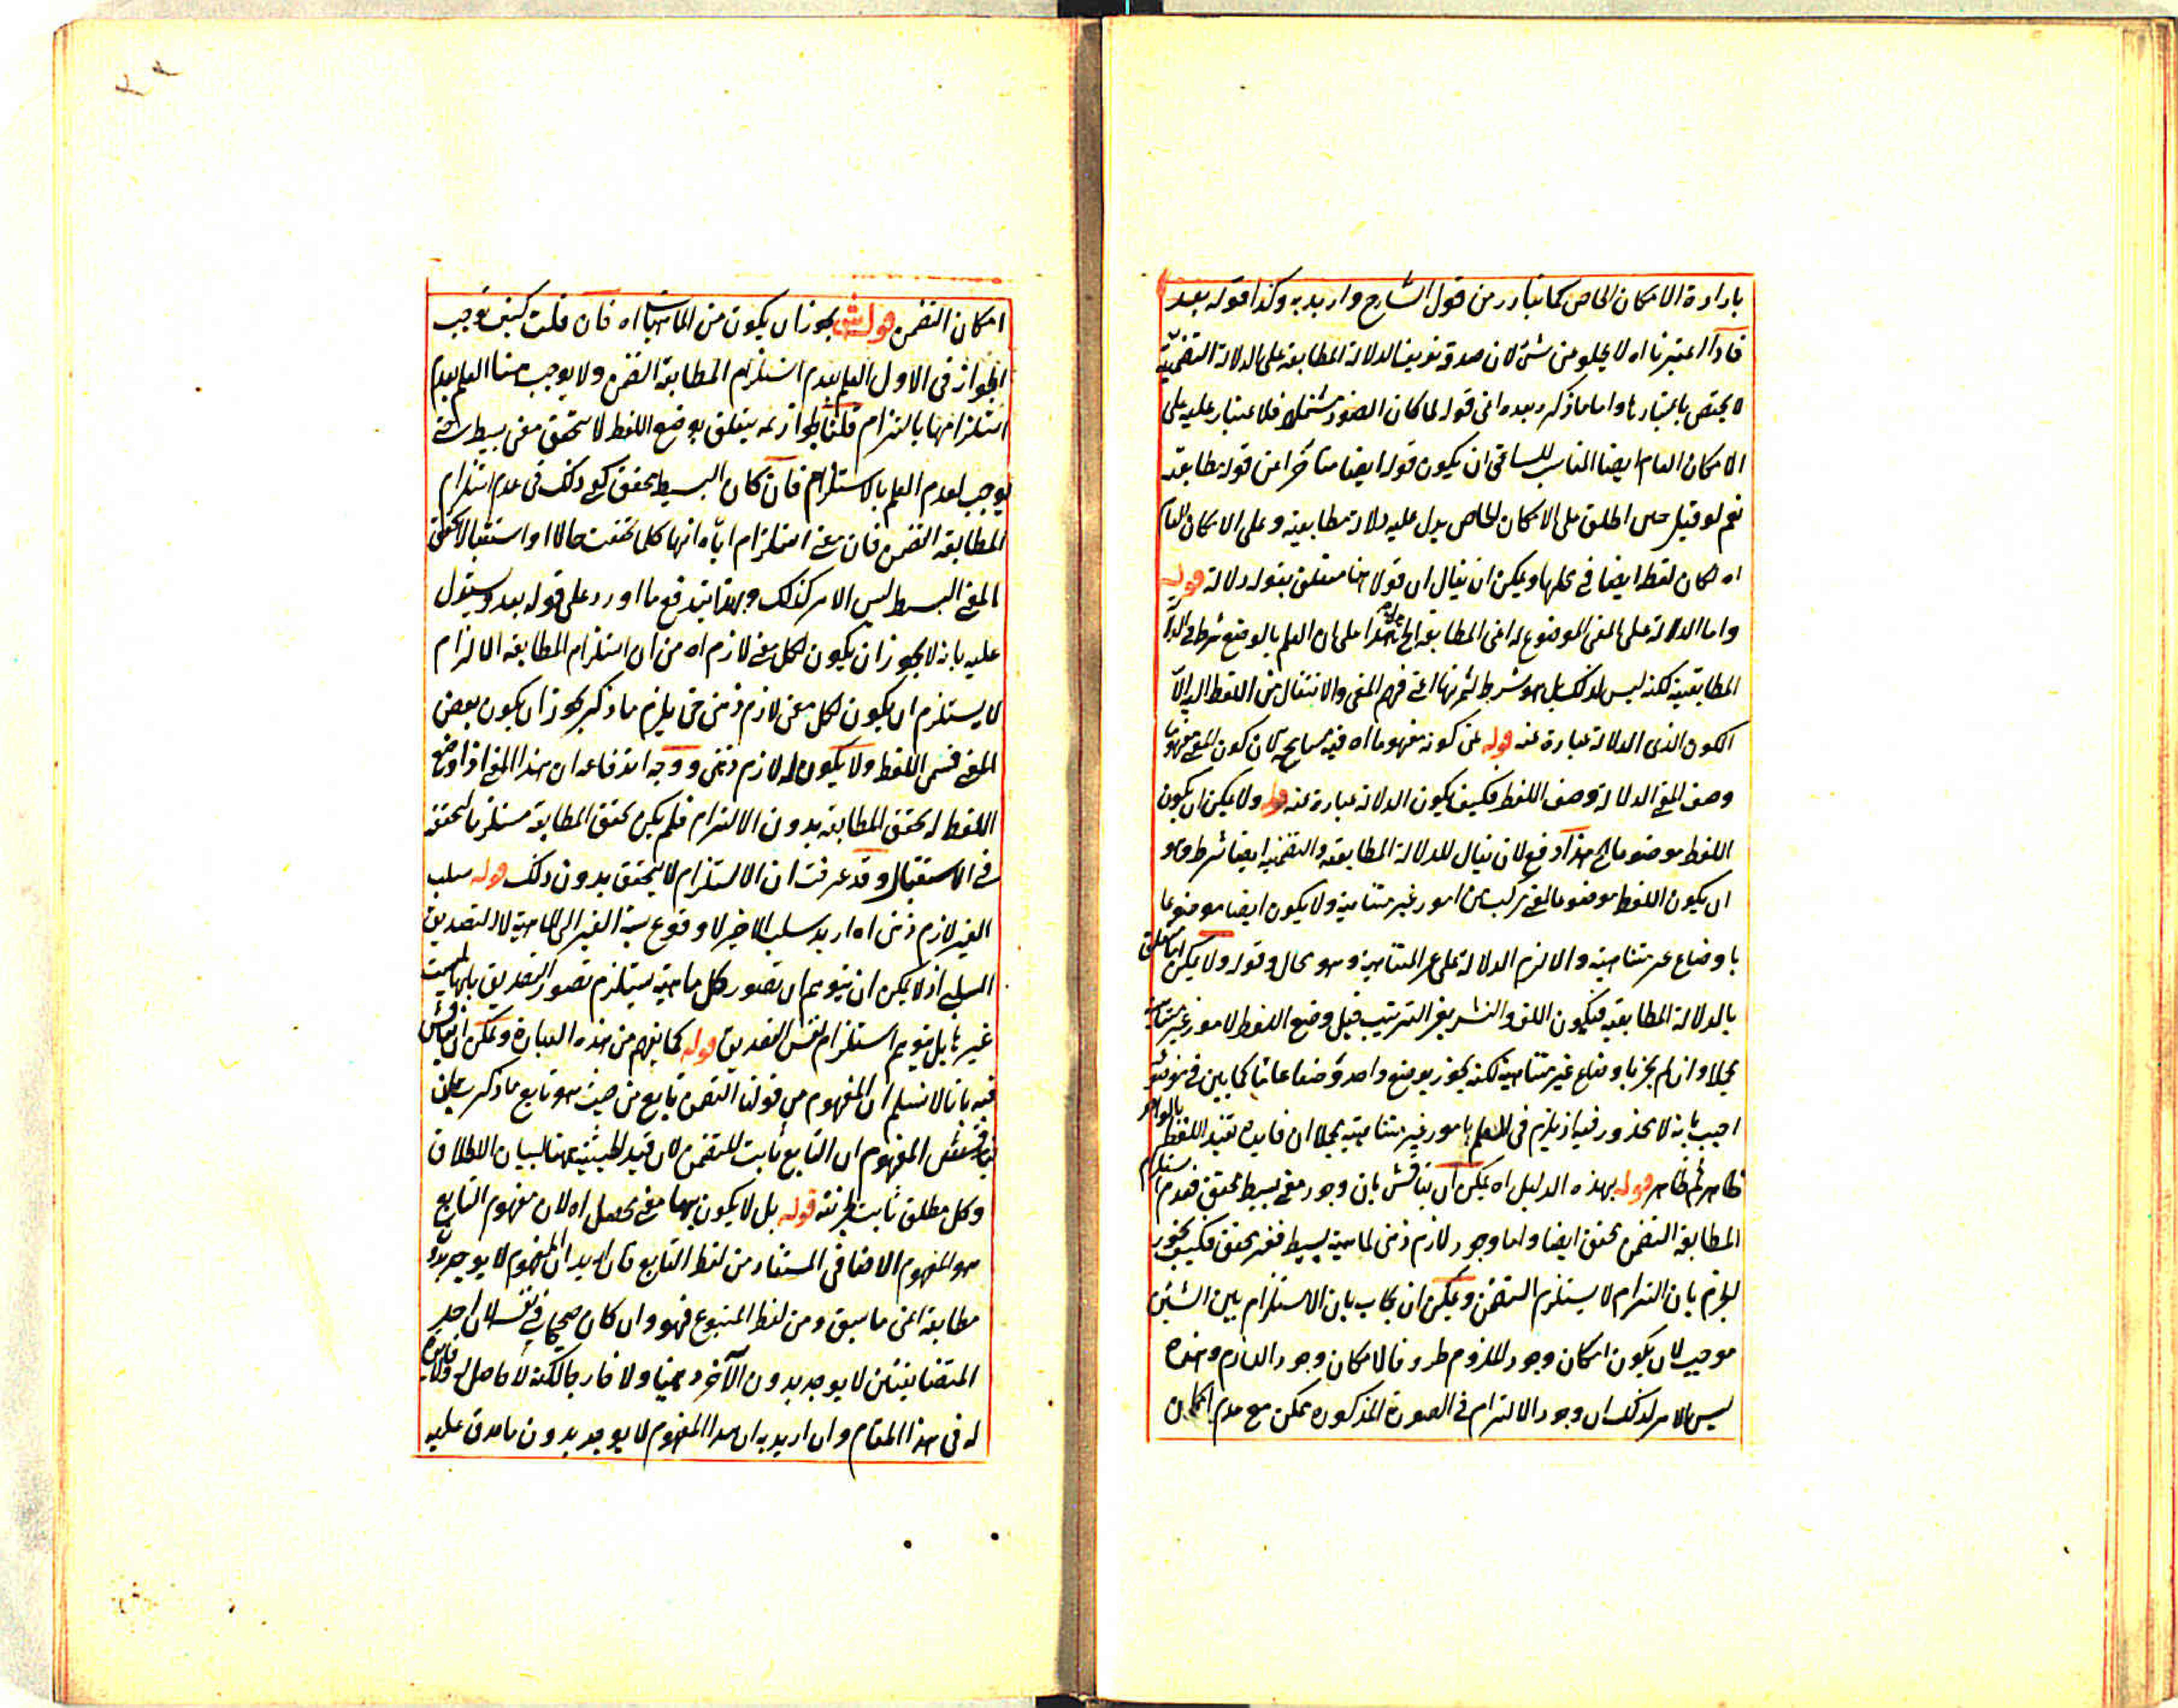 بارادة الامكان الخاص كما يتبادر من قول الشارح واريد به وكذا قوله بعد
فاذا اعتبرنا اه لا يخلو عن شئ لان صدق تعريف الدلالة المطابقة على الدلالة التضمنية
لا يختص باعتبارها واما ما ذكره بعده اعنى قوله لما كان الضوء مشتملا فلا غبار عليه على
الامكان العام ايضا المناسب للسباق ان يكون قوله ايضا متأخرا عن قوله مطابقة
نعم لو قيل حين اطلق على الامكان الخاص يدل عليه دلالة مطابقية وعلى الامكان العام
اه لكان لفظ ايضا فى محلها ويمكن ان يقال ان قولا هنا متعلق بقوله دلالة قوله
واما الدلالة على المعنى الموضوع له اعنى المطابقة الخ هذا على ان العلم بالوضع شرط فى الدلالة
المطابقية لكنه ليس كذلك بل هو شرط لثمرتها اعنى فهم المعنى والانتقال من اللفظ اليه الا
الكون الذى الدلالة عبارة عنه قوله عن كونه مفهوما اه فيه تسامح لان كون المعنى مفهوما
وصف المعنى الدلالة وصف اللفظ فكيف يكون الدلالة عبارة عنه قوله ولا يمكن ان يكون
اللفظ موضوعا الخ هذا دفع لان يقال للدلالة المطابقية والتضمنية ايضا شرط وهو
ان يكون اللفظ موضوعا لمعنى مركب من امور غير متناهية ولا يكون ايضا موضوعا
باوضاع غير متناهية والا لزم الدلالة على غير المتناهية وهو محال وقوله ولا يمكن اما متعلق
بالدلالة المطابقية فيكون اللف والنشر بغير الترتيب قيل وضع اللفظ لامور غير متناهية
مجملا وان لم يجز باوضاع غير متناهية لكنه يجوز بوضع واحد وضعا عاما كما بين فى موضعه
اجيب بانه لا محذور فيه اذ يلزم فى العلم بامور غير متناهية مجملا ان فايدة تقييد اللفظ بالواحد
ظاهر ثم ظاهر قوله بهذه الدليل اه يمكن ان يناقش بان وجود معنى بسيط محقق فعدم استلزام
المطابقة التضمن محقق ايضا واما وجود لازم ذهنى لماهية بسيط فغير محقق فكيف يجوز
الجزم بان التزام لا يستلزم التضمن ويمكن ان يجاب بان الاستلزام بين الشيئين
موجب لان يكون امكان وجود للملزوم طروفا لامكان وجود اللازم وهذه
ليس الامر كذلك ان وجود الالتزام فى الصورة المذكورة ممكن مع عدم امكان
امكان التضمن قوله يجوز ان يكون من الماهيات اه فان قلت كيف يوجب
الجواز فى الاول العلم بعدم استلزام المطابقة التضمن ولا يوجب هنا العلم بعدم
استلزامها بالتزام قلنا جوازه يتعلق بوضع اللفظ لا بتحقق معنى بسيط حتى
يوجب لعدم العلم بالاستلزام فان كان البسيط محقق كفى ذلك فى عدم استلزام
المطابقة التضمن فان معنى استلزام اياه انها كلما تحققت حالا او استقبالا تحقق
المعنى البسيط ليس الامر كذلك وبهذا يندفع ما اورد على قوله بعد وسيقول
عليه بانه لا يجوز ان يكون لكل معنى لازم اه من ان استلزام المطابقة الالتزام
لا يستلزم ان يكون لكل معنى لازم ذهنى حتى يلزم ما ذكر يجوز ان يكون بعض
المعنى قسمى اللفظ ولا يكون له لازم ذهنى ووجه اندفاعه ان هذا المعنى اذا وضع
اللفظ له تحقق المطابقة بدون الالتزام فلم يكن تحقق المطابقة مستلزما لتحققه
فى الاستقبال وقد عرفت ان الاستلزام لا يتحقق بدون ذلك قوله سلب
الغير لازم ذهنى اه اريد سلب الاخير لا وقوع نسبة الغير الى الماهية لا التصديق
السلبى اذ لا يمكن ان يتوهم ان تصور كل ماهية يستلزم تصور التصديق بانها ليست
غيرها بل يتوهم استلزام نفس التصديق قوله كما يفهم من هذه العبارة ويمكن ان يناقش
فيه بانا لا نسلم ان المفهوم من قولنا التضمن تابع من حيث هو تابع ما ذكر
المفهوم ان التابع ثابت للتضمن لان قيد الحيثية ههنا لبيان الاطلاق
وكل مطلق ثابت قوله بل لا يكون بهما معنى محصل اه لان مفهوم التابع
هو المفهوم الاضافى المستفاد من لفظ التابع فان اريد ان المفهوم لا يوجد بدون
مطابقة اعنى ما سبق ومن لفظ المتبوع فهو وان كان صحيحا فى نفسه لان احد
المتضايفين لا يوجد بدون الآخر ذهنا ولا خارجا لكنه لا حاصل له ولا فائدة
له فى هذا المقام وان اريد به ان هذا المفهوم لا يوجد بدون ما صدق عليه